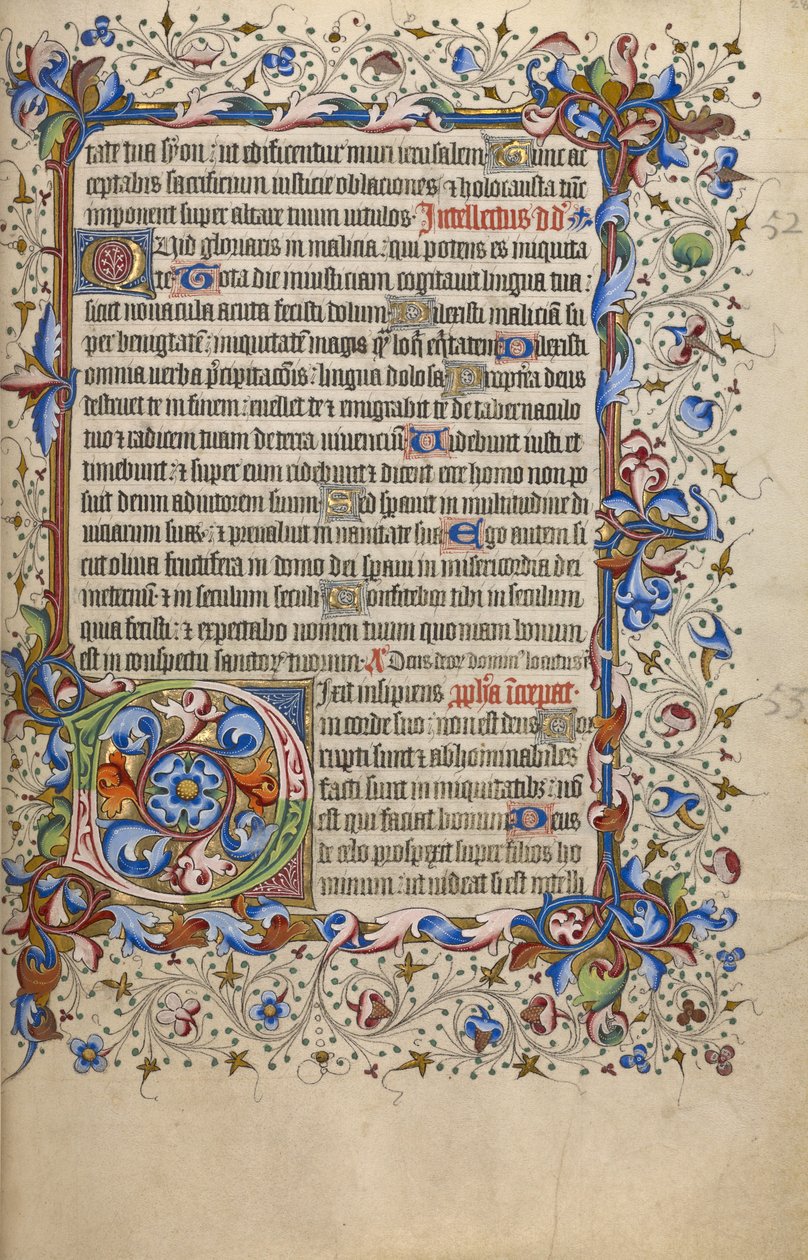 tate tua syon : ut edificentur muri ierusalem. Tunc ac
ceptabis sacrificium iusticie oblaciones & holocausta tūc
imponent super altare tuum vitulos. Intellectus dd
52
Quid gloriaris in malicia : qui potens es iniquita
te. Tota die iniusticiam cogitauit lingua tua :
sicut nouacula acuta fecisti dolum. Dilexisti maliciā su
per benigtatē : iniquitatem magis q̄ loq̄ eq̄tatem. Dilexisti
omnia verba p̄cipitacōis : lingua dolosa. Proptĕa deus
destruet te in finem : euellet te & emigrabit te de tabernaculo
tuo & radicem tuam de terra uiuenciū. Uidebunt iusti et
timebunt : & super eum ridebunt & dicent ecce homo non po
suit deum adiutorem suum. Sed spauit in multitudine di
uiciarum suaꝝ : & preualuit in uanitate sua. Ego autem si
cut oliua fructifera in domo dei spaui in misericordia dei
ineternū : & in seculum seculi. Confitebor tibi in seculum
quia fecisti : & expectabo nomen tuum quoniam bonum
est in conspectu sanctoꝝ tuorum. A Deus deoꝝ
53
Dixit insipiens
in corde suo : non est deus. Cor
rupti sunt & abhominabiles
facti sunt in iniquitatibꝫ : nō
est qui faciat bonum. Deus
de celo prospexit super filios ho
minum : ut uideat si est intelli